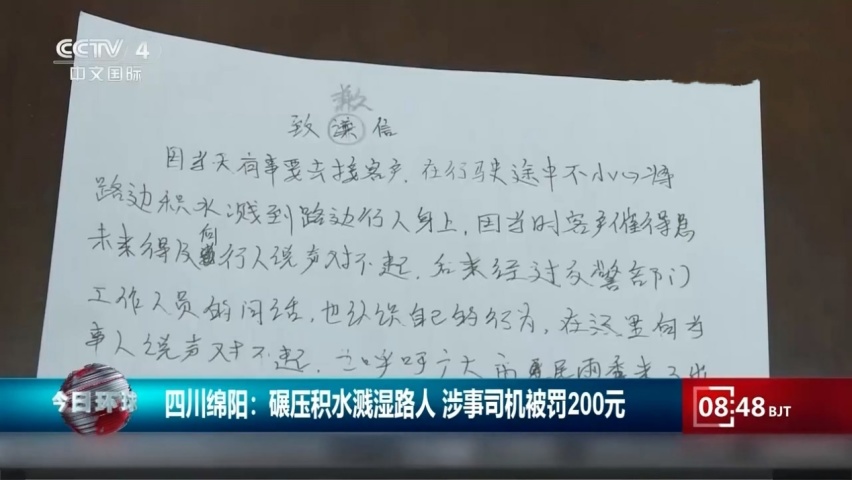 CCTV 4
中文国际
歉
致 信
因当天有事要去接客户，在行驶途中不小心将
路边积水溅到路边行人身上，因当时客户催得急
未来得及向行人说声对不起，后来经过交警部门
工作人员的问话，也认识自己的行为，在这里向当
事人说声对不起，
今日环球
四川绵阳：碾压积水溅湿路人 涉事司机被罚200元
08:48 BJT